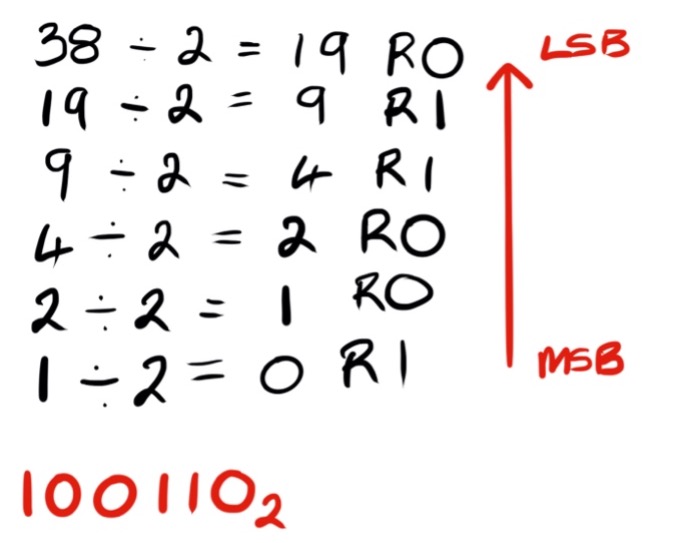 38 ÷ 2 = 19 R0 LSB
19 ÷ 2 = 9 R1
9 ÷ 2 = 4 R1
4 ÷ 2 = 2 R0
2 ÷ 2 = 1 R0
1 ÷ 2 = 0 R1 MSB
100110₂